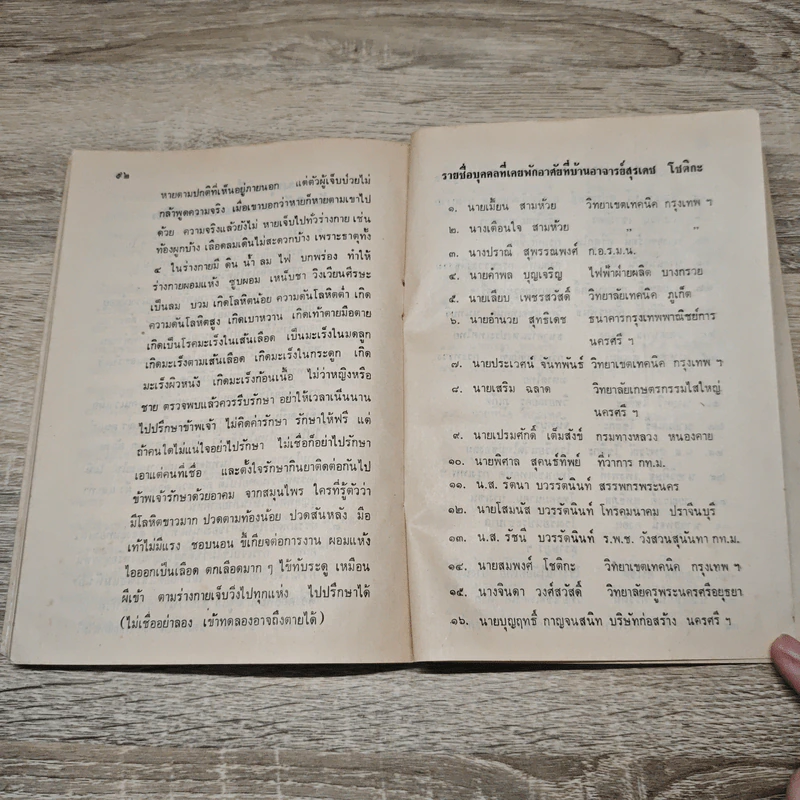 ๕๒
หายตามปกติที่เห็นอยู่ภายนอก แต่ตัวผู้เจ็บป่วยไม่
กล้าพูดความจริง เมื่อเขาบอกว่าหายก็หายตามเขาไป
ด้วย ความจริงแล้วยังไม่ หายเจ็บไปทั่วร่างกาย เช่น
ท้องผูกบ้าง เลือดลมเดินไม่สะดวกบ้าง เพราะธาตุทั้ง
๔ ในร่างกายมี ดิน น้ำ ลม ไฟ บกพร่อง ทำให้
ร่างกายผอมแห้ง ซูบผอม เหน็บชา วิงเวียนศีรษะ
เป็นลม บวม เกิดโลหิตน้อย ความดันโลหิตต่ำ เกิด
ความดันโลหิตสูง เกิดเบาหวาน เกิดเท้าตายมือตาย
เกิดเป็นโรคมะเร็งในเส้นเลือด เป็นมะเร็งในมดลูก
เกิดมะเร็งตามเส้นเลือด เกิดมะเร็งในกระดูก เกิด
มะเร็งผิวหนัง เกิดมะเร็งก้อนเนื้อ ไม่ว่าหญิงหรือ
ชาย ตรวจพบแล้วควรรีบรักษา อย่าให้เวลาเนิ่นนาน
ไปปรึกษาข้าพเจ้า ไม่คิดค่ารักษา รักษาให้ฟรี แต่
ถ้าคนใดไม่แน่ใจอย่าไปรักษา ไม่เชื่อก็อย่าไปรักษา
เอาแต่คนที่เชื่อ และตั้งใจรักษากินยาติดต่อกันไป
ข้าพเจ้ารักษาด้วยอาคม จากสมุนไพร ใครที่รู้ตัวว่า
มีโลหิตขาวมาก ปวดตามท้องน้อย ปวดสันหลัง มือ
เท้าไม่มีแรง ชอบนอน ขี้เกียจต่อการงาน ผอมแห้ง
ไอออกเป็นเลือด ตกเลือดมาก ๆ ไข้ทับระดู เหมือน
ผีเข้า ตามร่างกายเจ็บวิ่งไปทุกแห่ง ไปปรึกษาได้
(ไม่เชื่ออย่าลอง เข้าทดลองอาจถึงตายได้)
รายชื่อบุคคลที่เคยพักอาศัยที่บ้านอาจารย์สุรเดช โชติกะ
๑. นายเมี้ยน สามห้วย วิทยาเขตเทคนิค กรุงเทพ ฯ
๒. นางเตือนใจ สามห้วย ,, ,,
๓. นางปราณี สุพรรณพงศ์ ก.อ.ร.ม.น.
๔. นายคำพล บุญเจริญ ไฟฟ้าฝ่ายผลิต บางกรวย
๕. นายเลียบ เพชรสวัสดิ์ วิทยาลัยเทคนิค ภูเก็ต
๖. นายอำนวย สุทธิเดช ธนาคารกรุงเทพพาณิชย์การ
นครศรี ฯ
๗. นายประเวศน์ จันทพันธ์ วิทยาเขตเทคนิค กรุงเทพ ฯ
๘. นายเสริม ฉลาด วิทยาลัยเกษตรกรรมไสใหญ่
นครศรี ฯ
๙. นายเปรมศักดิ์ เต็มสังข์ กรมทางหลวง หนองคาย
๑๐. นายพิศาล สุคนธ์ทิพย์ ที่ว่าการ กท.ม.
๑๑. น.ส. รัตนา บวรรัตนินท์ สรรพกรพระนคร
๑๒. นายโสมนัส บวรรัตนินท์ โทรคมนาคม ปราจีนบุรี
๑๓. น.ส. รัชนี บวรรัตนินท์ ร.พ.ช. วังสวนสุนันทา กท.ม.
๑๔. นายสมพงศ์ โชติกะ วิทยาเขตเทคนิค กรุงเทพ ฯ
๑๕. นางจินดา วงศ์สวัสดิ์ วิทยาลัยครูพระนครศรีอยุธยา
๑๖. นายบุญฤทธิ์ กาญจนสนิท บริษัทก่อสร้าง นครศรี ฯ